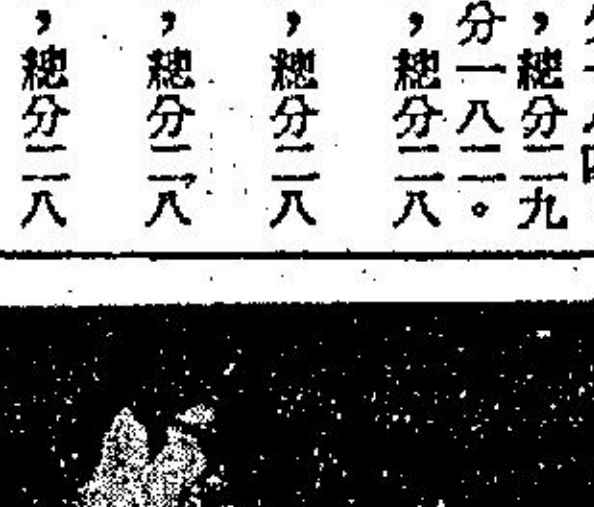 ，總分二九
分一八二。
，總分二八
，總分二八
，總分二八
，總分二八